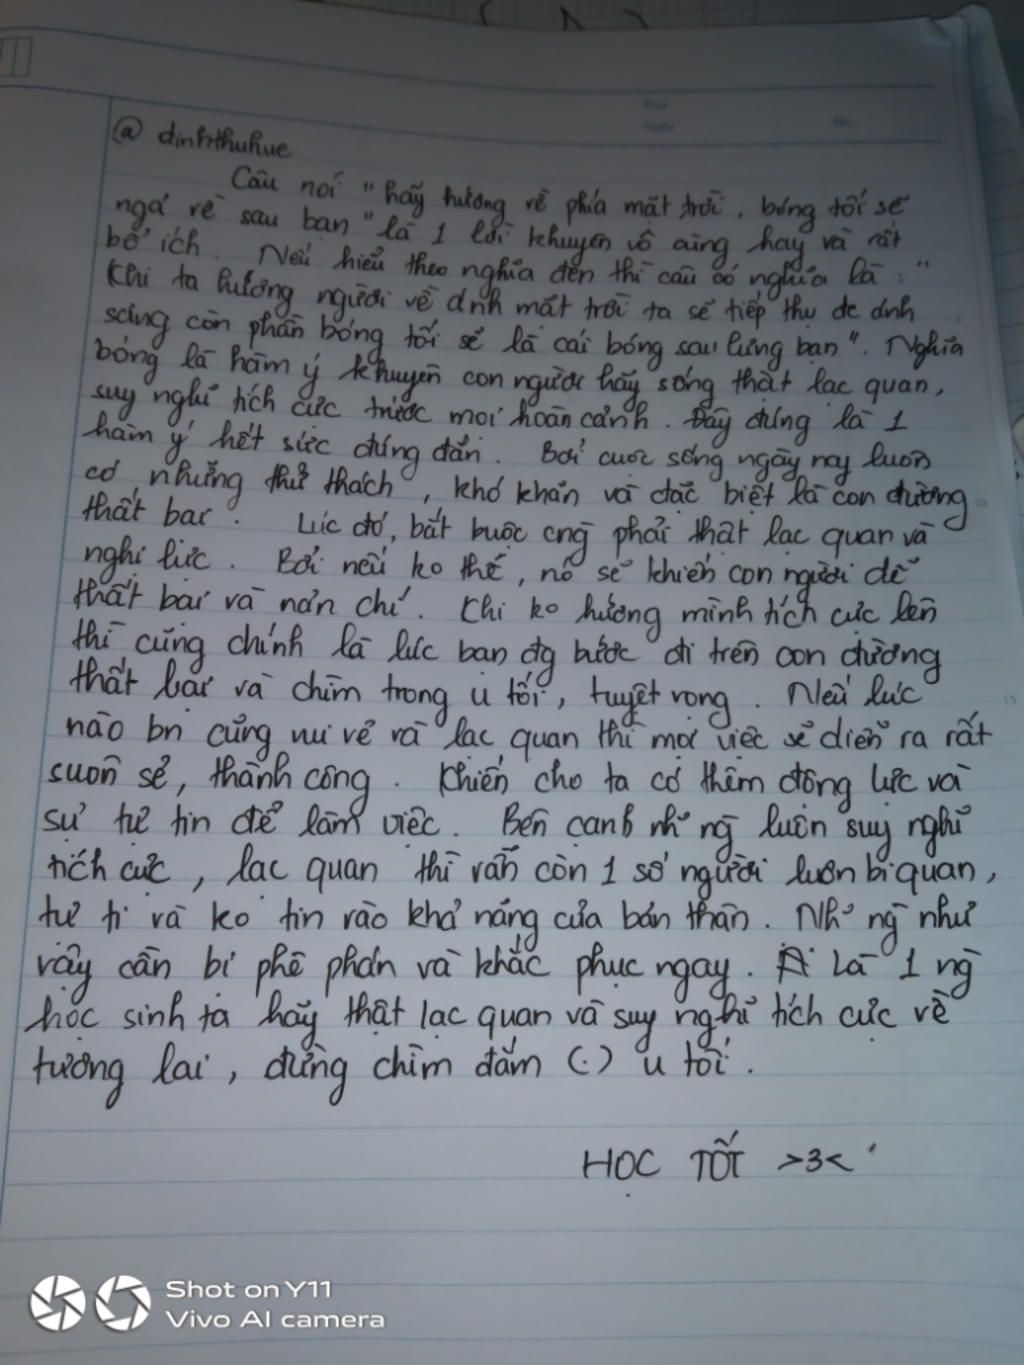 Thứ
Ngày
No.
@ dinhthuhue
Câu nói "hãy hướng về phía mặt trời, bóng tối sẽ
ngả về sau bạn" là 1 lời khuyên vô cùng hay và rất
bổ ích. Nếu hiểu theo nghĩa đen thì câu có nghĩa là : "
Khi ta hướng người về ánh mặt trời ta sẽ tiếp thu đc ánh
sáng còn phần bóng tối sẽ là cái bóng sau lưng bạn". Nghĩa
bóng là hàm ý khuyên con người hãy sống thật lạc quan,
suy nghĩ tích cực trước mọi hoàn cảnh. Đây đúng là 1
hàm ý hết sức đúng đắn. Bởi cuộc sống ngày nay luôn
có những thử thách, khó khăn và đặc biệt là con đường
thất bại. Lúc đó, bắt buộc cng phải thật lạc quan và
nghị lực. Bởi nếu ko thế, nó sẽ khiến con người dễ
thất bại và nản chí. Khi ko hướng mình tích cực lên
thì cũng chính là lúc bạn đg bước đi trên con đường
thất bại và chìm trong u tối, tuyệt vọng. Nếu lúc
nào bn cũng vui vẻ và lạc quan thì mọi việc sẽ diễn ra rất
suôn sẻ, thành công. Khiến cho ta có thêm động lực và
sự tự tin để làm việc. Bên cạnh nh~ ng` luôn suy nghĩ
tích cực, lạc quan thì vẫn còn 1 số người luôn bi quan,
tự ti và ko tin vào khả năng của bản thân. Nh~ ng` như
vậy cần bị phê phán và khắc phục ngay. Là 1 ng`
học sinh ta hãy thật lạc quan và suy nghĩ tích cực về
tương lai, đừng chìm đắm (.) u tối.
HỌC TỐT >3<
Shot on Y11
Vivo AI camera